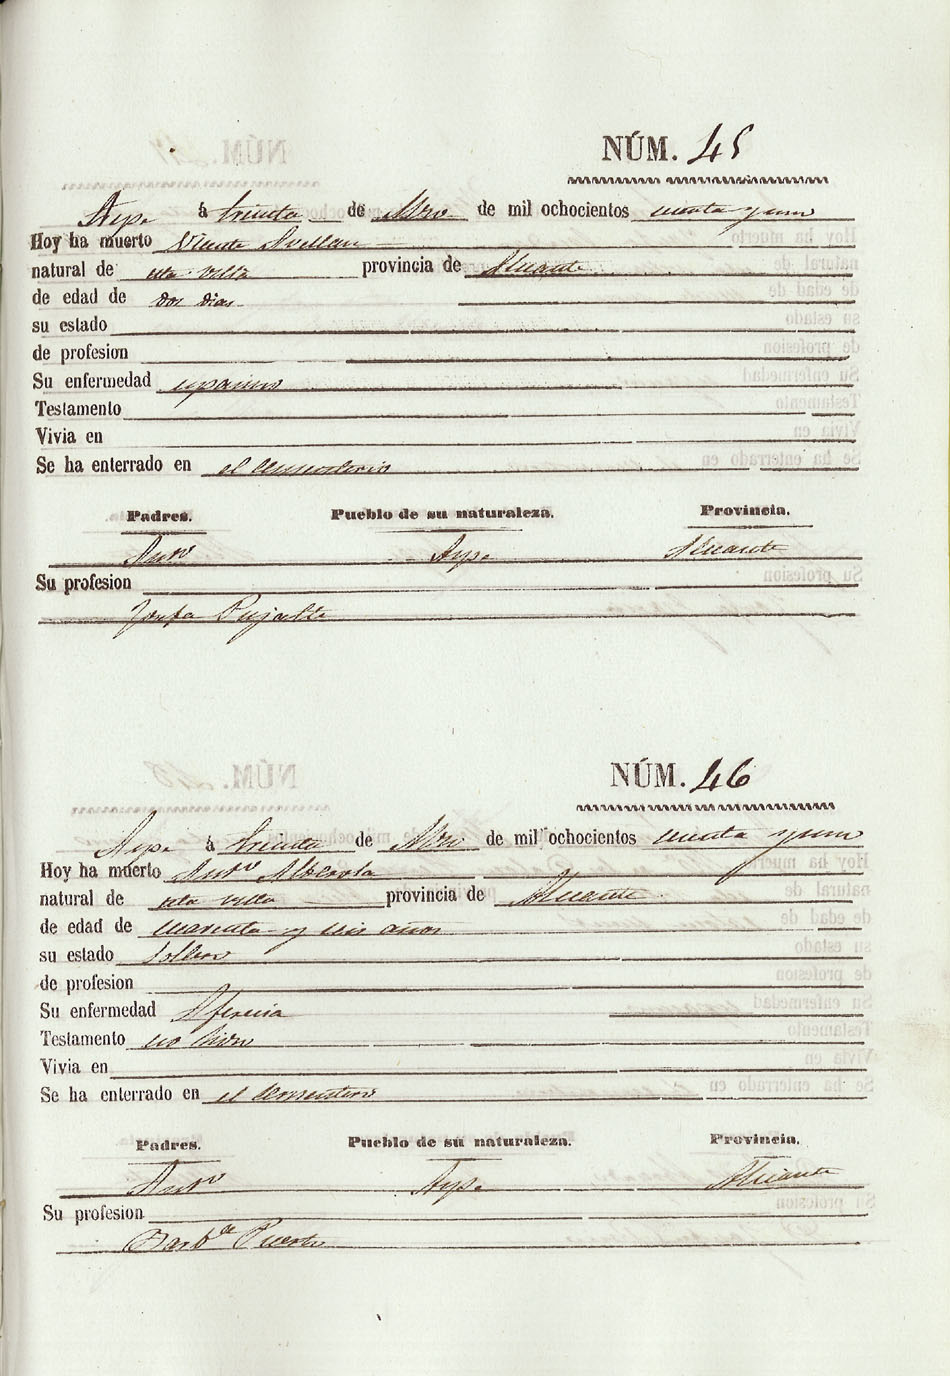 NÚM. 45
Aspe á treinta de Mzo de mil ochocientos cuarenta y uno
Hoy ha muerto Vicente Avellan
natural de esta villa provincia de Alicante
de edad de dos dias
su estado
de profesion
Su enfermedad espasmo
Testamento
Vivia en
Se ha enterrado en el Cementerio
Padres. Pueblo de su naturaleza. Provincia.
Antº Aspe Alicante
Su profesion
Josefa Pujalte
NÚM. 46
Aspe á treinta de Mzo de mil ochocientos cuarenta y uno
Hoy ha muerto Antº Alberola
natural de esta villa provincia de Alicante
de edad de cuarenta y seis años
su estado Soltero
de profesion
Su enfermedad
Testamento no hizo
Vivia en
Se ha enterrado en el Cementerio
Padres. Pueblo de su naturaleza. Provincia.
Antº Aspe Alicante
Su profesion
Puerto